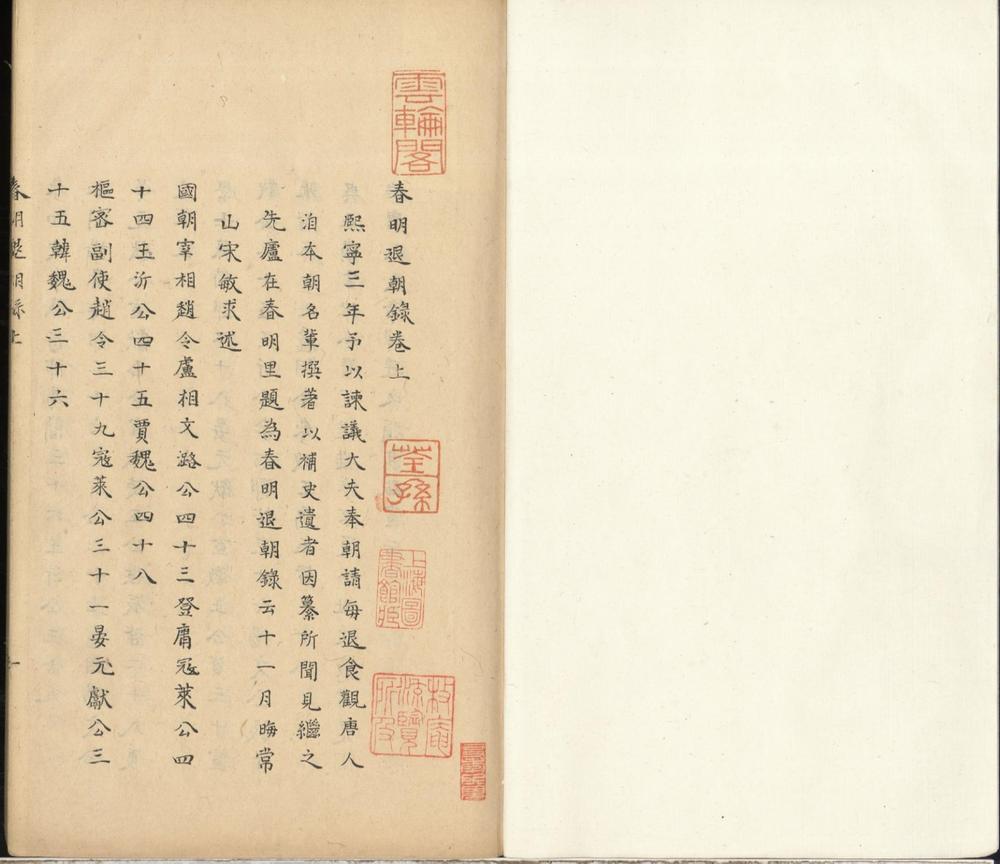 春明退朝錄卷上
熙寧三年予以諫議大夫奉朝請每退食觀唐人
洎本朝名輩撰著以補史遺者因纂所聞見繼之
先廬在春明里題為春明退朝錄云十一月晦常
山宋敏求述
國朝宰相趙令盧相文潞公四十三登庸寇萊公四
十四王沂公四十五賈魏公四十八
樞密副使趙令三十九寇萊公三十一晏元獻公三
十五韓魏公三十六
春明退朝錄上
一
雲輪閣
荃孫
上海圖書館臧